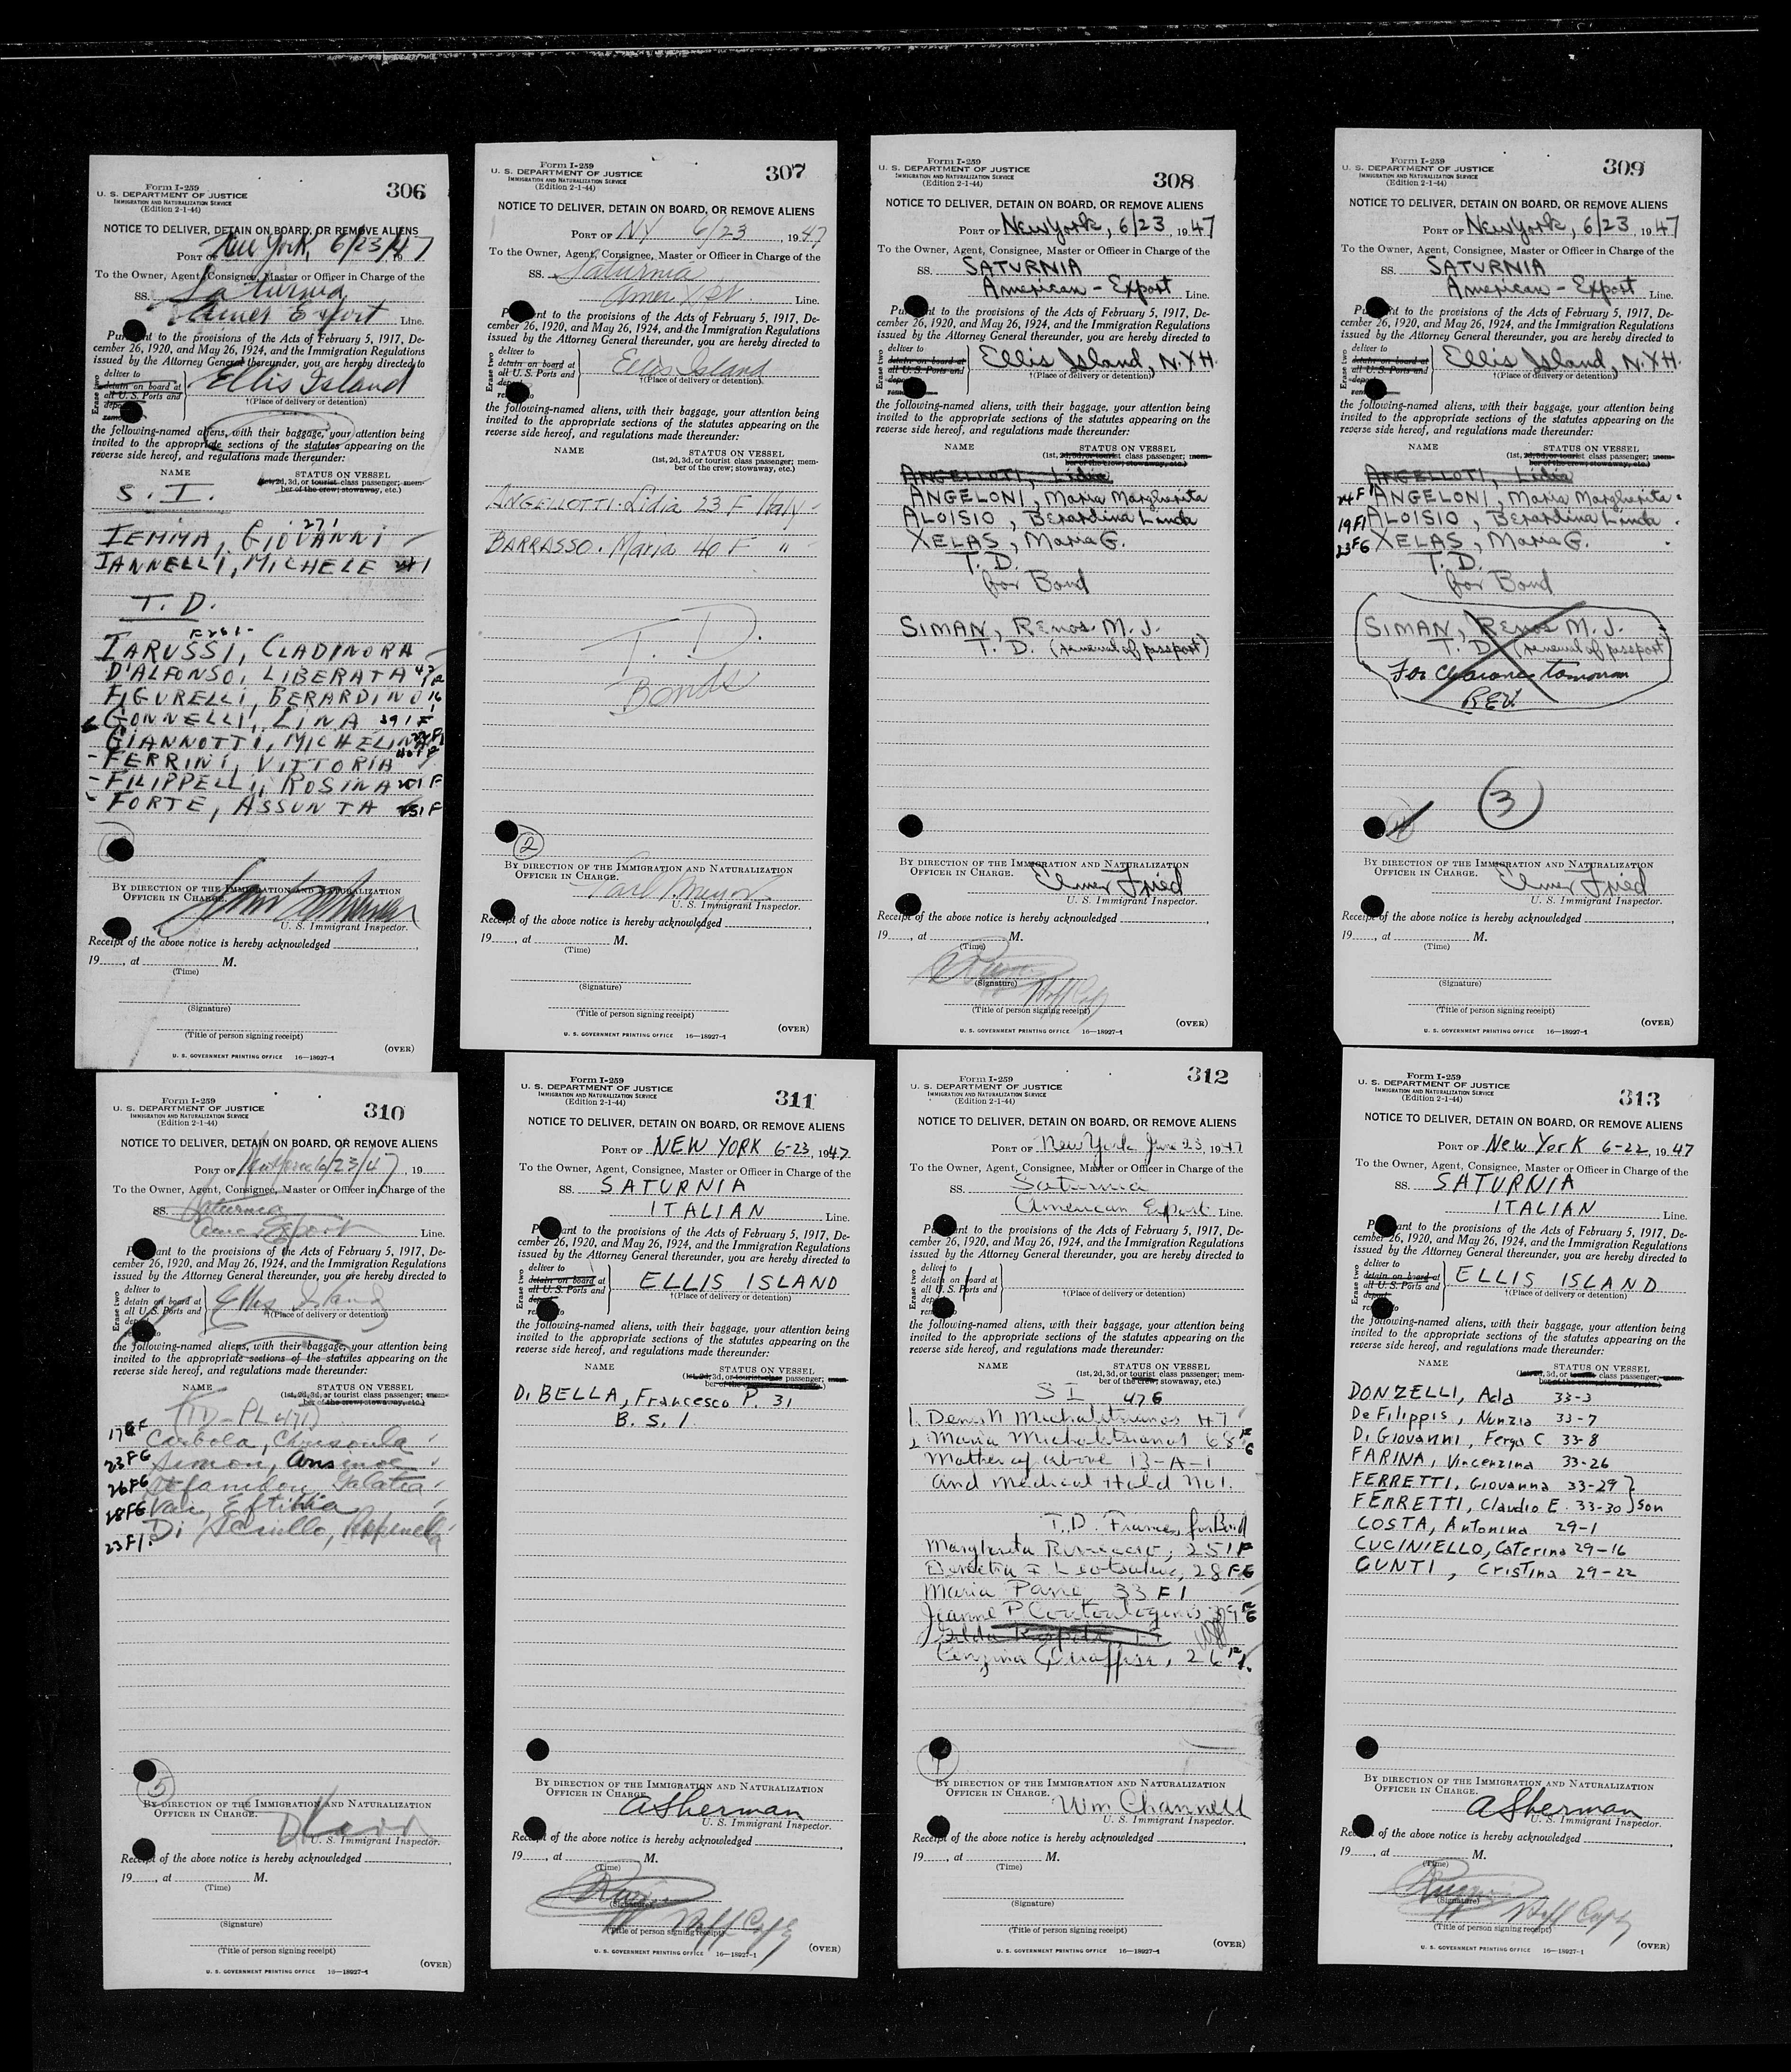 Form I-259
U. S. DEPARTMENT OF JUSTICE
IMMIGRATION AND NATURALIZATION SERVICE
(Edition 2-1-44)
306
NOTICE TO DELIVER, DETAIN ON BOARD, OR REMOVE ALIENS
PORT OF New York, 6/23/47
To the Owner, Agent, Consignee, Master or Officer in Charge of the
SS. Saturnia
Amer Export Line.
to the provisions of the Acts of February 5, 1917, De-
cember 26, 1920, and May 26, 1924, and the Immigration Regulations
issued by the Attorney General thereunder, you are hereby directed to
Erase two
deliver to
detain on board at
all U. S. Ports and
Ellis Island
†(Place of delivery or detention)
the following-named aliens, with their baggage, your attention being
invited to the appropriate sections of the statutes appearing on the
reverse side hereof, and regulations made thereunder:
NAME STATUS ON VESSEL
(1st, 2d, 3d, or tourist class passenger; mem-
ber of the crew; stowaway, etc.)
S. I.
IEMMA, GIOVANNI 27 1
IANNELLI, MICHELE
T. D.
IARUSSI, CLADINORA
D'ALFONSO, LIBERATA
FIGURELLI, BERARDINO 16
GONNELLI, LINA 39 1 F
GIANNOTTI, MICHELINA
FERRINI, VITTORIA
FILIPPELLI, ROSINA
FORTE, ASSUNTA
BY DIRECTION OF THE IMMIGRATION AND NATURALIZATION
OFFICER IN CHARGE.
U. S. Immigrant Inspector.
Receipt of the above notice is hereby acknowledged
19, at M.
(Time)
(Signature)
(Title of person signing receipt)
U. S. GOVERNMENT PRINTING OFFICE 16—18927-1
(OVER)
Form I-259
U. S. DEPARTMENT OF JUSTICE
IMMIGRATION AND NATURALIZATION SERVICE
(Edition 2-1-44)
307
NOTICE TO DELIVER, DETAIN ON BOARD, OR REMOVE ALIENS
PORT OF NY 6/23, 1947
To the Owner, Agent, Consignee, Master or Officer in Charge of the
SS. Saturnia
Line.
to the provisions of the Acts of February 5, 1917, De-
cember 26, 1920, and May 26, 1924, and the Immigration Regulations
issued by the Attorney General thereunder, you are hereby directed to
Erase two
deliver to
detain on board at
all U. S. Ports and
Ellis Island
†(Place of delivery or detention)
the following-named aliens, with their baggage, your attention being
invited to the appropriate sections of the statutes appearing on the
reverse side hereof, and regulations made thereunder:
NAME STATUS ON VESSEL
(1st, 2d, 3d, or tourist class passenger; mem-
ber of the crew; stowaway, etc.)
ANGELLOTTI. Lidia 23 F Italy
BARRASSO. Maria 40 F "
T. D.
Bonds
2
BY DIRECTION OF THE IMMIGRATION AND NATURALIZATION
OFFICER IN CHARGE.
U. S. Immigrant Inspector.
Receipt of the above notice is hereby acknowledged
19, at M.
(Time)
(Signature)
(Title of person signing receipt)
U. S. GOVERNMENT PRINTING OFFICE 16—18927-1
(OVER)
Form I-259
U. S. DEPARTMENT OF JUSTICE
IMMIGRATION AND NATURALIZATION SERVICE
(Edition 2-1-44)
308
NOTICE TO DELIVER, DETAIN ON BOARD, OR REMOVE ALIENS
PORT OF New York, 6/23, 1947
To the Owner, Agent, Consignee, Master or Officer in Charge of the
SS. SATURNIA
American - Export Line.
to the provisions of the Acts of February 5, 1917, De-
cember 26, 1920, and May 26, 1924, and the Immigration Regulations
issued by the Attorney General thereunder, you are hereby directed to
Erase two
deliver to
detain on board at
all U. S. Ports and
Ellis Island, N.Y.H.
†(Place of delivery or detention)
the following-named aliens, with their baggage, your attention being
invited to the appropriate sections of the statutes appearing on the
reverse side hereof, and regulations made thereunder:
NAME STATUS ON VESSEL
(1st, 2d, 3d, or tourist class passenger; mem-
ber of the crew; stowaway, etc.)
ANGELLOTI, Lidia
ANGELONI, Maria Margherita
ALOISIO, Berardina Linda
XELAS, Maria G.
T. D.
for Bond
SIMAN, Renos M. J.
T. D. (renewal of passport)
BY DIRECTION OF THE IMMIGRATION AND NATURALIZATION
OFFICER IN CHARGE.
Elmer Fried
U. S. Immigrant Inspector.
Receipt of the above notice is hereby acknowledged
19, at M.
(Time)
(Signature)
(Title of person signing receipt)
U. S. GOVERNMENT PRINTING OFFICE 16—18927-1
(OVER)
Form I-259
U. S. DEPARTMENT OF JUSTICE
IMMIGRATION AND NATURALIZATION SERVICE
(Edition 2-1-44)
309
NOTICE TO DELIVER, DETAIN ON BOARD, OR REMOVE ALIENS
PORT OF New York, 6/23, 1947
To the Owner, Agent, Consignee, Master or Officer in Charge of the
SS. SATURNIA
American - Export Line.
to the provisions of the Acts of February 5, 1917, De-
cember 26, 1920, and May 26, 1924, and the Immigration Regulations
issued by the Attorney General thereunder, you are hereby directed to
Erase two
deliver to
detain on board at
all U. S. Ports and
Ellis Island, N.Y.H.
†(Place of delivery or detention)
the following-named aliens, with their baggage, your attention being
invited to the appropriate sections of the statutes appearing on the
reverse side hereof, and regulations made thereunder:
NAME STATUS ON VESSEL
(1st, 2d, 3d, or tourist class passenger; mem-
ber of the crew; stowaway, etc.)
ANGELLOTI, Lidia
24 F 1 ANGELONI, Maria Margherita
19 F1 ALOISIO, Berardina Linda
23 F G XELAS, Maria G.
T. D.
for Bond
SIMAN, Renos M. J.
T. D. (renewal of passport)
For clearance tomorrow
REV
3
4
BY DIRECTION OF THE IMMIGRATION AND NATURALIZATION
OFFICER IN CHARGE.
Elmer Fried
U. S. Immigrant Inspector.
Receipt of the above notice is hereby acknowledged
19, at M.
(Time)
(Signature)
(Title of person signing receipt)
U. S. GOVERNMENT PRINTING OFFICE 16—18927-1
(OVER)
Form I-259
U. S. DEPARTMENT OF JUSTICE
IMMIGRATION AND NATURALIZATION SERVICE
(Edition 2-1-44)
310
NOTICE TO DELIVER, DETAIN ON BOARD, OR REMOVE ALIENS
PORT OF New York 6/23/47, 19
To the Owner, Agent, Consignee, Master or Officer in Charge of the
SS. Saturnia
Amer Export Line.
to the provisions of the Acts of February 5, 1917, De-
cember 26, 1920, and May 26, 1924, and the Immigration Regulations
issued by the Attorney General thereunder, you are hereby directed to
Erase two
deliver to
detain on board at
all U. S. Ports and
Ellis Island
†(Place of delivery or detention)
the following-named aliens, with their baggage, your attention being
invited to the appropriate sections of the statutes appearing on the
reverse side hereof, and regulations made thereunder:
NAME STATUS ON VESSEL
(1st, 2d, 3d, or tourist class passenger; mem-
ber of the crew; stowaway, etc.)
(TD - PL 471)
23 F G Simon,
26 F G Galatia
28 F G Eftihia
23 F 1. Di
5
BY DIRECTION OF THE IMMIGRATION AND NATURALIZATION
OFFICER IN CHARGE.
U. S. Immigrant Inspector.
Receipt of the above notice is hereby acknowledged
19, at M.
(Time)
(Signature)
(Title of person signing receipt)
U. S. GOVERNMENT PRINTING OFFICE 16—18927-1
(OVER)
Form I-259
U. S. DEPARTMENT OF JUSTICE
IMMIGRATION AND NATURALIZATION SERVICE
(Edition 2-1-44)
311
NOTICE TO DELIVER, DETAIN ON BOARD, OR REMOVE ALIENS
PORT OF NEW YORK 6-23, 1947
To the Owner, Agent, Consignee, Master or Officer in Charge of the
SS. SATURNIA
ITALIAN Line.
to the provisions of the Acts of February 5, 1917, De-
cember 26, 1920, and May 26, 1924, and the Immigration Regulations
issued by the Attorney General thereunder, you are hereby directed to
Erase two
deliver to
detain on board at
all U. S. Ports and
ELLIS ISLAND
†(Place of delivery or detention)
the following-named aliens, with their baggage, your attention being
invited to the appropriate sections of the statutes appearing on the
reverse side hereof, and regulations made thereunder:
NAME STATUS ON VESSEL
(1st, 2d, 3d, or tourist class passenger; mem-
ber of the crew; stowaway, etc.)
Di BELLA, Francesco P. 31
B. S. I
BY DIRECTION OF THE IMMIGRATION AND NATURALIZATION
OFFICER IN CHARGE.
A Sherman
U. S. Immigrant Inspector.
Receipt of the above notice is hereby acknowledged
19, at M.
(Time)
(Signature)
(Title of person signing receipt)
U. S. GOVERNMENT PRINTING OFFICE 16—18927-1
(OVER)
Form I-259
U. S. DEPARTMENT OF JUSTICE
IMMIGRATION AND NATURALIZATION SERVICE
(Edition 2-1-44)
312
NOTICE TO DELIVER, DETAIN ON BOARD, OR REMOVE ALIENS
PORT OF New York June 23, 1947
To the Owner, Agent, Consignee, Master or Officer in Charge of the
SS. Saturnia
American Export Line.
to the provisions of the Acts of February 5, 1917, De-
cember 26, 1920, and May 26, 1924, and the Immigration Regulations
issued by the Attorney General thereunder, you are hereby directed to
Erase two
deliver to
detain on board at
all U. S. Ports and
†(Place of delivery or detention)
the following-named aliens, with their baggage, your attention being
invited to the appropriate sections of the statutes appearing on the
reverse side hereof, and regulations made thereunder:
NAME STATUS ON VESSEL
(1st, 2d, 3d, or tourist class passenger; mem-
ber of the crew; stowaway, etc.)
S I 47 G
1. 47
2. Maria 68 F G
Mother of above 13-A-1
and Medical Hold No 1.
T. D. for Bond
Margherita 25 1 F
28 F G
Maria Pane 33 F 1
Jeanne P
26 F 1.
1
BY DIRECTION OF THE IMMIGRATION AND NATURALIZATION
OFFICER IN CHARGE.
Wm Channell
U. S. Immigrant Inspector.
Receipt of the above notice is hereby acknowledged
19, at M.
(Time)
(Signature)
(Title of person signing receipt)
U. S. GOVERNMENT PRINTING OFFICE 16—18927-1
(OVER)
Form I-259
U. S. DEPARTMENT OF JUSTICE
IMMIGRATION AND NATURALIZATION SERVICE
(Edition 2-1-44)
313
NOTICE TO DELIVER, DETAIN ON BOARD, OR REMOVE ALIENS
PORT OF New York 6-22, 1947
To the Owner, Agent, Consignee, Master or Officer in Charge of the
SS. SATURNIA
ITALIAN Line.
to the provisions of the Acts of February 5, 1917, De-
cember 26, 1920, and May 26, 1924, and the Immigration Regulations
issued by the Attorney General thereunder, you are hereby directed to
Erase two
deliver to
detain on board at
all U. S. Ports and
ELLIS ISLAND
†(Place of delivery or detention)
the following-named aliens, with their baggage, your attention being
invited to the appropriate sections of the statutes appearing on the
reverse side hereof, and regulations made thereunder:
NAME STATUS ON VESSEL
(1st, 2d, 3d, or tourist class passenger; mem-
ber of the crew; stowaway, etc.)
DONZELLI, Ada 33-3
De Filippis, Nunzia 33-7
Di Giovanni, Ferga C 33-8
FARINA, Vincenzina 33-26
FERRETTI, Giovanna 33-29
FERRETTI, Claudio E. 33-30 } Son
COSTA, Antonina 29-1
CUCINIELLO, Caterina 29-16
CUNTI, Cristina 29-22
BY DIRECTION OF THE IMMIGRATION AND NATURALIZATION
OFFICER IN CHARGE.
A Sherman
U. S. Immigrant Inspector.
Receipt of the above notice is hereby acknowledged
19, at M.
(Time)
(Signature)
(Title of person signing receipt)
U. S. GOVERNMENT PRINTING OFFICE 16—18927-1
(OVER)